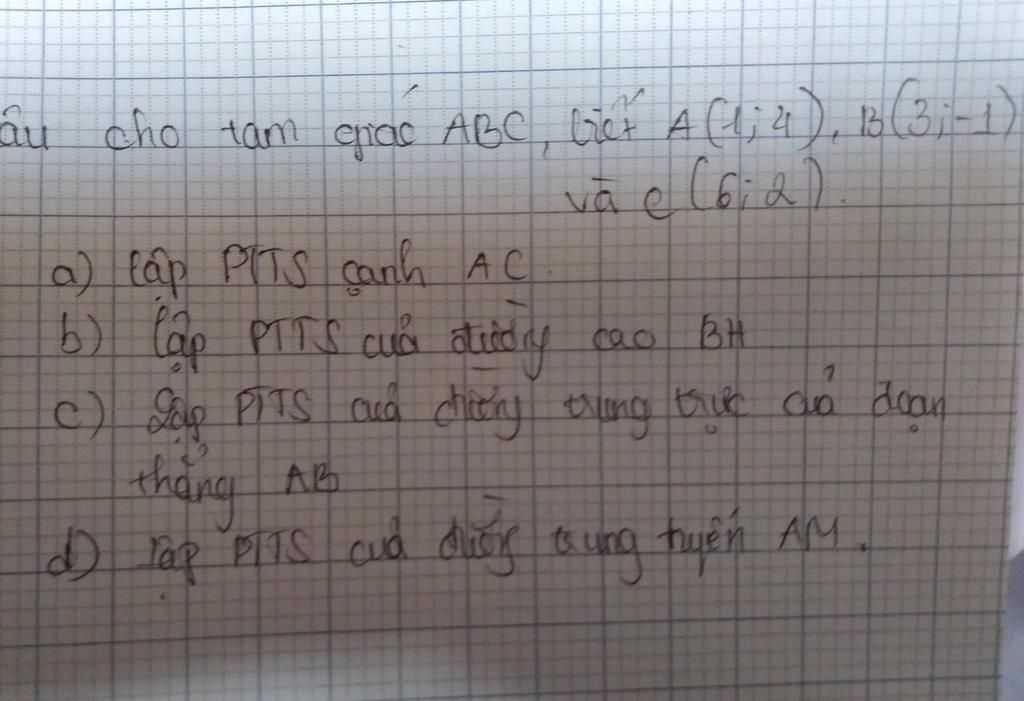 âu cho tam giác ABC, biết A(1; 4), B(3; -1)
và C(6; 2).
a) lập PTTS cạnh AC.
b) lập PTTS của đường cao BH
c) Lập PTTS của đường trung trực của đoạn
thẳng AB
d) lập PTTS của đường trung tuyến AM.